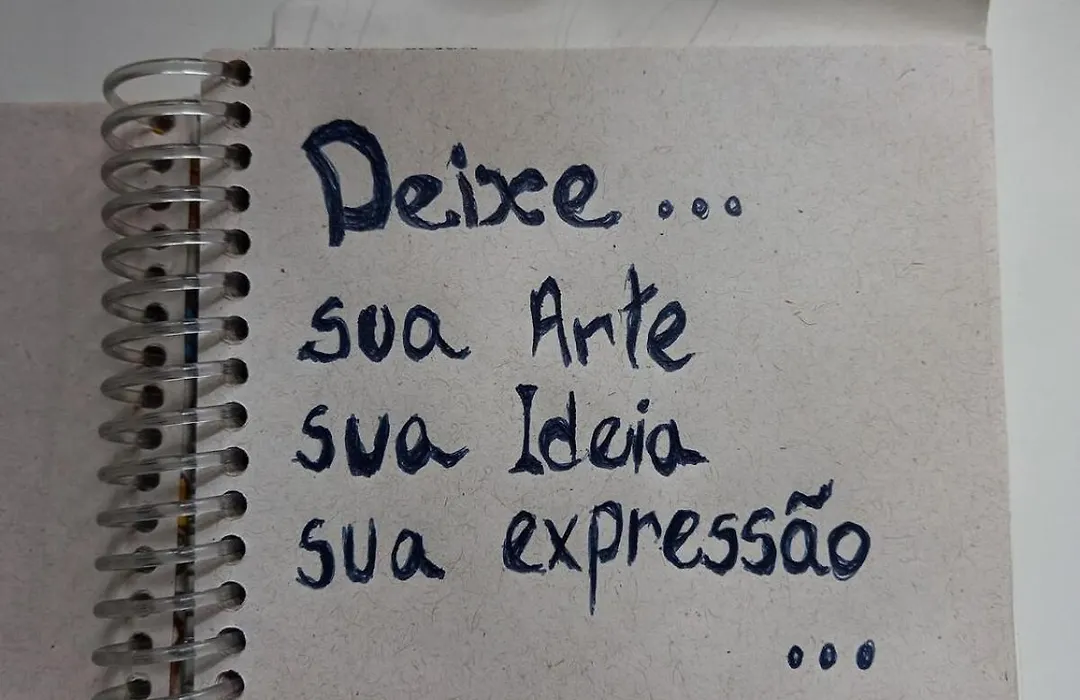 Deixe...
sua Arte
sua Ideia
sua expressão
...